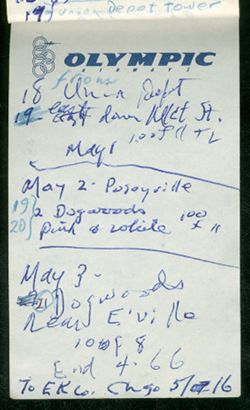 19 union Depot tower
OLYMPIC
from
18 Union Depot
19 east down Mkt St.
100 f 11 + L
May 1
May 2 - Poseyville
19) 2 Dogwoods 100
20) Pink & white f 11
May 3 -
21 Dogwoods
Near E'ville
100 f 8
End 4-66
To EK Co. Chgo 5/ /16